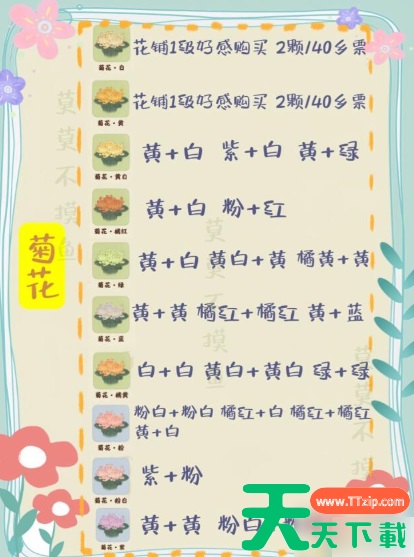 菊花
菊花·白
花铺1级好感购买 2颗/40乡票
菊花·黄
花铺1级好感购买 2颗/40乡票
菊花·黄白
黄+白 紫+白 黄+绿
菊花·橘红
黄+白 粉+红
菊花·绿
黄+白 黄白+黄 橘黄+黄
菊花·蓝
黄+黄 橘红+橘红 黄+蓝
菊花·橘黄
白+白 黄白+黄白 绿+绿
菊花·粉
粉白+粉白 橘红+白 橘红+橘红
黄+白
菊花·粉白
紫+粉
菊花·紫
黄+黄 粉白
莫莫不摸鱼
莫莫不摸鱼
莫莫不摸
www.TTzip.com
天天下載